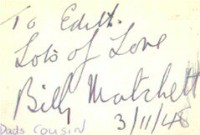 To Edith.
Lots of Love
Billy Matchett
Dads Cousin 3/11/48